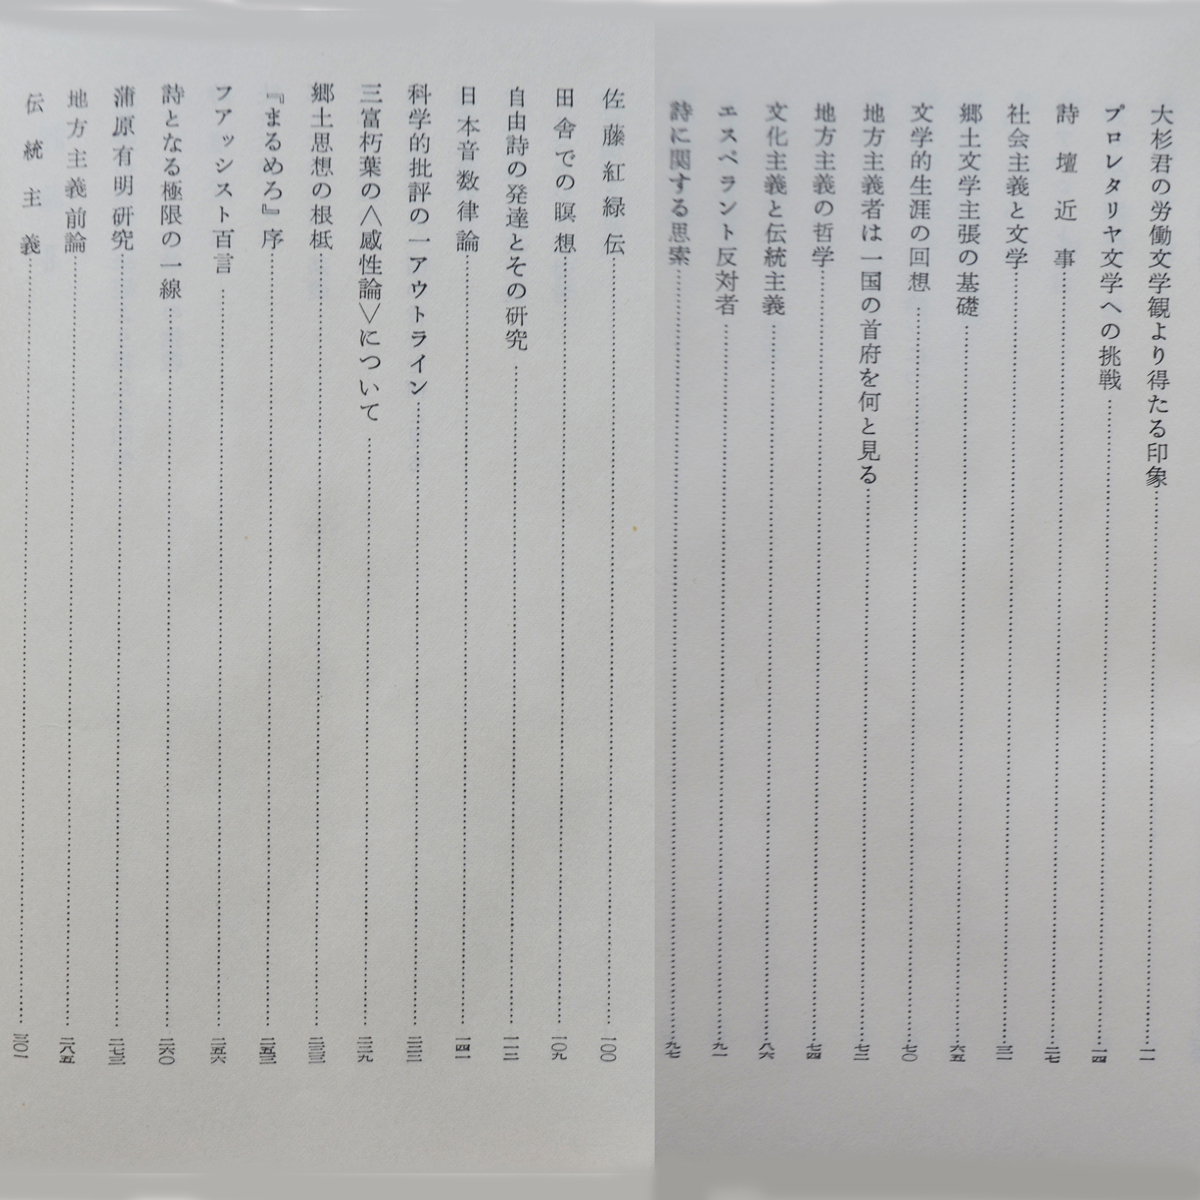 大杉君の労働文学観より得たる印象……一一
プロレタリヤ文学への挑戦……一四
詩壇近事……二七
社会主義と文学……三一
郷土文学主張の基礎……六五
文学的生涯の回想……七〇
地方主義者は一国の首府を何と見る……七二
地方主義の哲学……七四
文化主義と伝統主義……八六
エスペラント反対者……九一
詩に関する思索……九七
佐藤紅緑伝……一〇〇
田舎での瞑想……一〇九
自由詩の発達とその研究……一一二
日本音数律論……一四一
科学的批評の一アウトライン……二二二
三富朽葉の〈感性論〉について……二二九
郷土思想の根柢……二三三
『まるめろ』序……二五三
フアッシスト百言……二五六
詩となる極限の一線……二六〇
蒲原有明研究……二七三
地方主義前論……二八五
伝統主義……三〇一